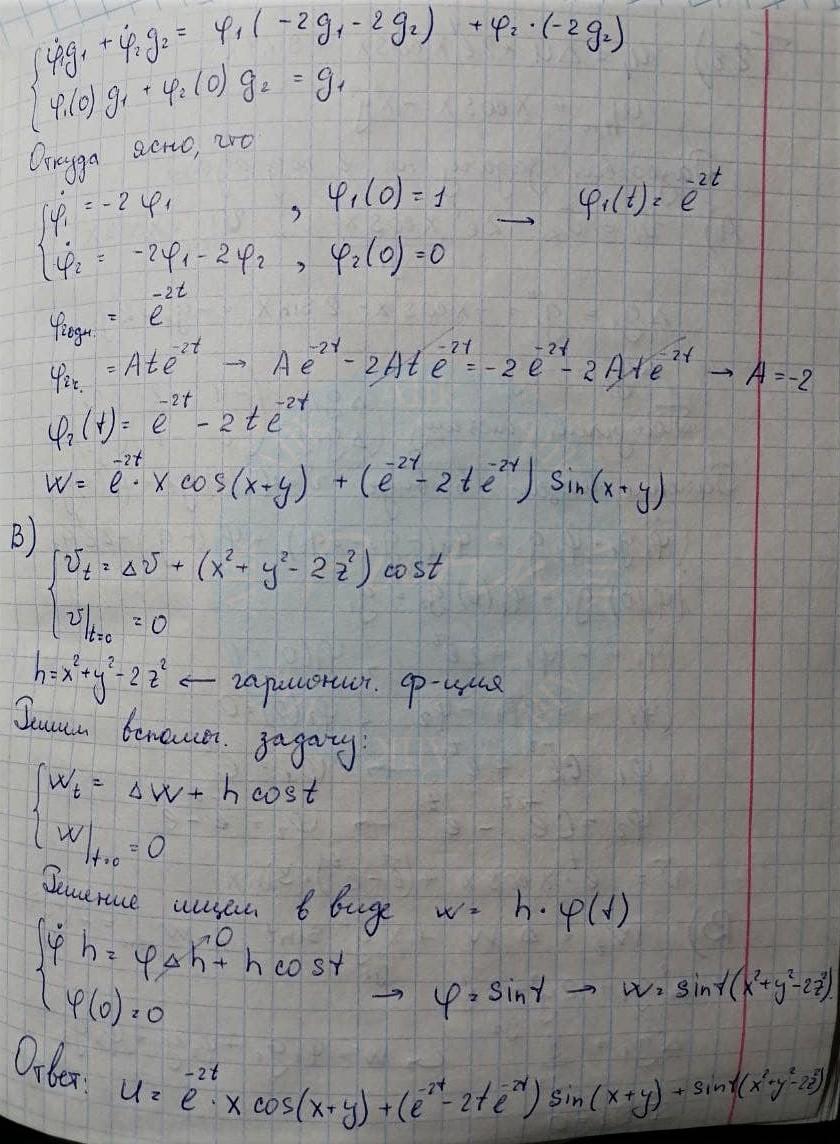 φ̇₁g₁ + φ̇₂g₂ = φ₁(-2g₁ - 2g₂) + φ₂·(-2g₂)
φ₁(0)g₁ + φ₂(0)g₂ = g₁
Откуда ясно, что
φ̇₁ = -2φ₁ , φ₁(0) = 1 → φ₁(t) = e^{-2t}
φ̇₂ = -2φ₁ - 2φ₂ , φ₂(0) = 0
φ₂одн. = e^{-2t}
φ₂ч. = Ate^{-2t} → Ae^{-2t} - 2Ate^{-2t} = -2e^{-2t} - 2Ate^{-2t} → A = -2
φ₂(t) = e^{-2t} - 2te^{-2t}
W = e^{-2t}·x cos(x+y) + (e^{-2t} - 2te^{-2t}) sin(x+y)
В)
v_t = Δv + (x² + y² - 2z²) cost
v|_{t=0} = 0
h = x² + y² - 2z² ← гармонич. ф-ция
Решим вспомог. задачу:
w_t = Δw + h cost
w|_{t=0} = 0
Решение ищем в виде w = h·φ(t)
φ̇ h = φΔh→0 + h cost
φ(0) = 0 → φ = sint → w = sint(x²+y²-2z²)
Ответ: u = e^{-2t}·x cos(x+y) + (e^{-2t} - 2te^{-2t}) sin(x+y) + sint(x²+y²-2z²)